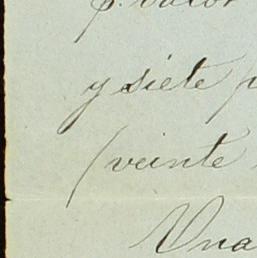 p. valor
y siete p
(veinte
Una